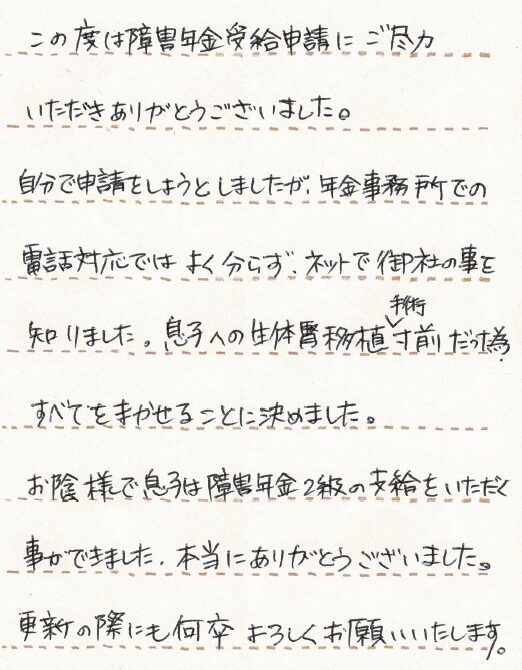 この度は障害年金受給申請にご尽力
いただきありがとうございました。
自分で申請をしようとしましたが、年金事務所での
電話対応ではよく分らず、ネットで御社の事を
知りました。息子への生体腎移植手術寸前だった為、
すべてをまかせることに決めました。
お陰様で息子は障害年金2級の支給をいただく
事ができました。本当にありがとうございました。
更新の際にも何卒よろしくお願いいたします。